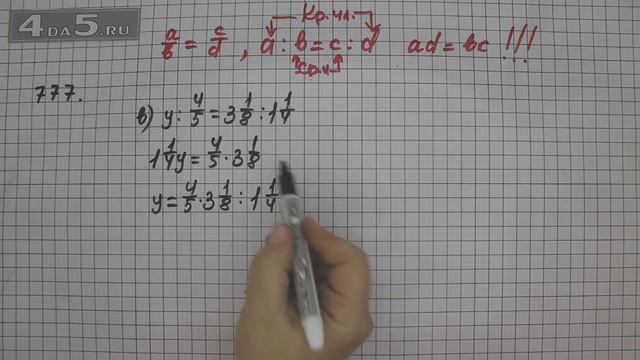 4DA5.RU
Кр.чл.
a/b = c/d , a : b = c : d ad = bc !!!
777.
в) y : 4/5 = 3 1/8 : 1 1/4
1 1/4 y = 4/5 · 3 1/8
y = 4/5 · 3 1/8 : 1 1/4